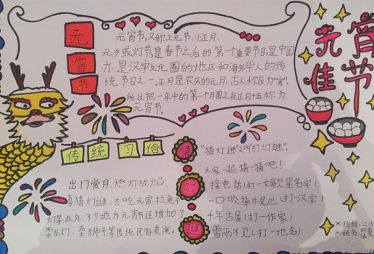 元宵佳节
元宵节
元宵节,又称上元节,小正月、
元夕或灯节是春节之后的第一个重要节日是中国
亦是汉字文化圈的地区和海外华人的传
统节日之一,正月是农历的元月,古人称夜为"宵",
所以把一年中的第一个月圆之夜正月十五称为
元宵节。
传统习俗
出门赏月,燃灯放焰,
喜猜灯谜,共吃元宵,拉兔子
灯等。此外,不少地方元宵节还增加了
等传统民俗表演。
猜灯谜
"猜灯谜"又叫"打灯谜"。
大家一起猜一猜吧!
口咬掉牛尾巴(打一汉字)
千年古屋(打一作家)
雪雨不见(打一地名)